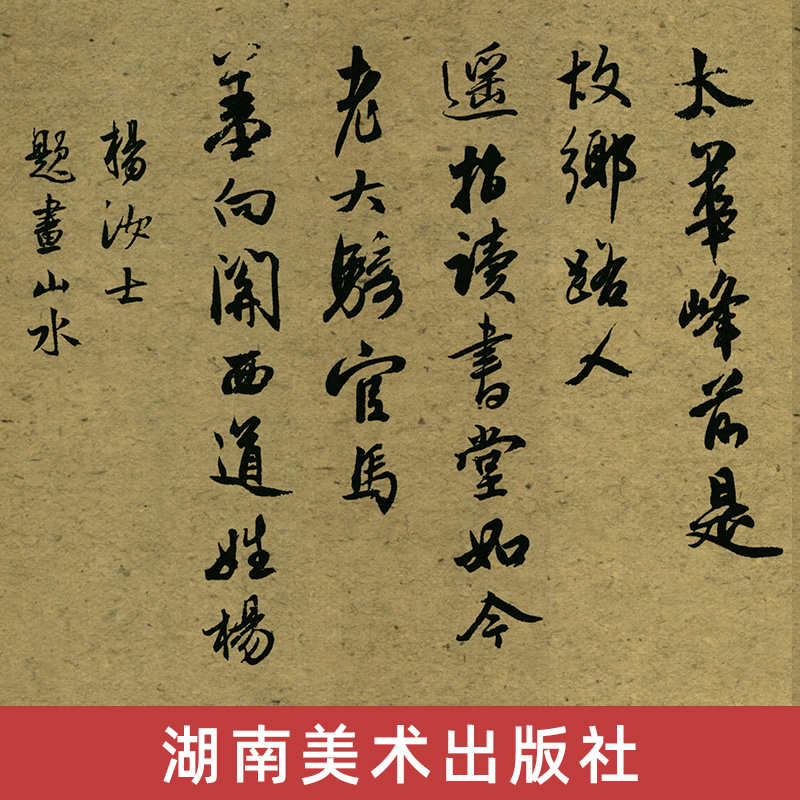 太華峰前是
故鄉路人
遥指讀書堂如今
老大騎官馬
羞向關西道姓楊
楊汝士
題畫山水
湖南美术出版社